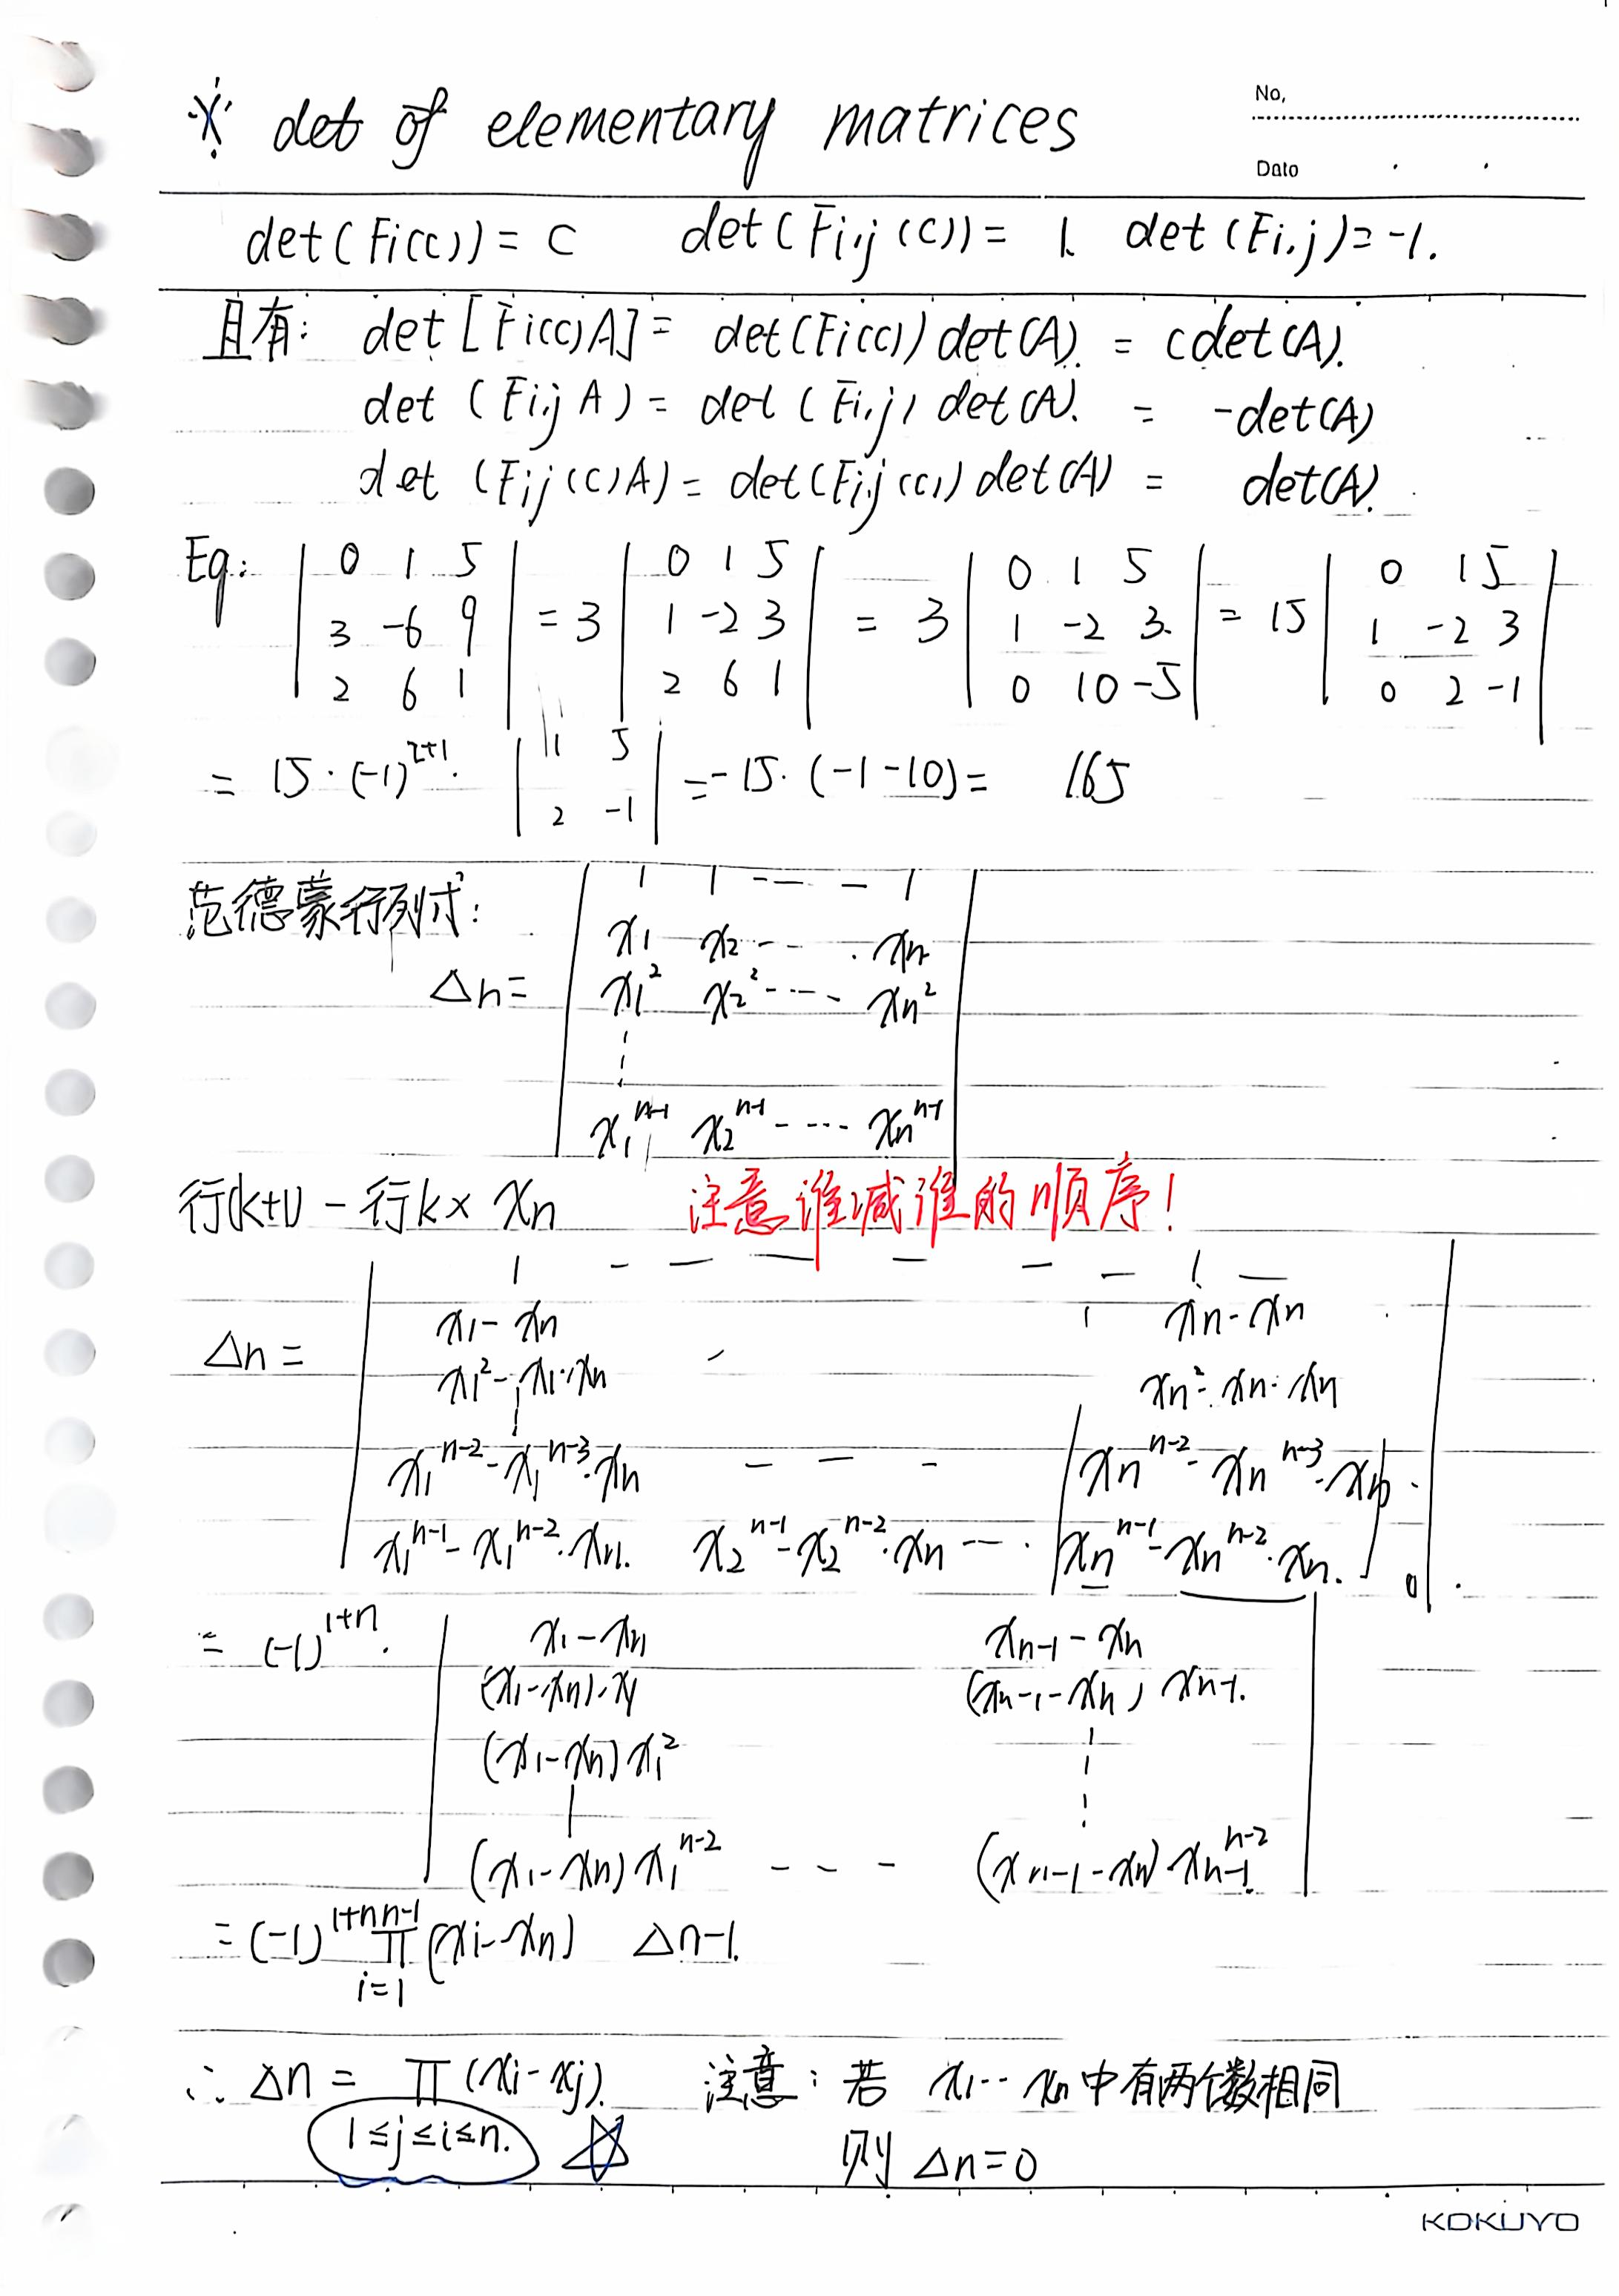 ※ det of elementary matrices
No.
Date
det(Fi(c)) = c det(Fi,j(c)) = 1. det(Fi,j) = -1.
且有: det[Fi(c)A] = det(Fi(c)) det(A). = cdet(A).
det (Fi,j A) = det (Fi,j) det(A). = -det(A)
det (Fij(c)A) = det(Fi,j(c)) det(A) = det(A).
Eg: | 0 1 5 | = 3 | 0 1 5 | = 3 | 0 1 5 | = 15 | 0 1 5 |
| 3 -6 9 | | 1 -2 3 | | 1 -2 3 | | 1 -2 3 |
| 2 6 1 | | 2 6 1 | | 0 10 -5 | | 0 2 -1 |
= 15·(-1)^{2+1}· | 1 5 | = -15·(-1-10) = 165
| 2 -1 |
范德蒙行列式:
Δn = | 1 1 -- - 1 |
| x1 x2 --- xn |
| x1^2 x2^2 ---- xn^2 |
| x1^{n-1} x2^{n-1} ---- xn^{n-1} |
行(k+1) - 行k × xn 注意谁减谁的顺序!
Δn = | 1 - - - - - - 1 - |
| x1-xn xn-xn |
| x1^2-x1·xn xn^2-xn·xn |
| x1^{n-2}-x1^{n-3}·xn - - - xn^{n-2}-xn^{n-3}·xn |
| x1^{n-1}-x1^{n-2}·xn. x2^{n-1}-x2^{n-2}·xn --- xn^{n-1}-xn^{n-2}·xn. | 0
= (-1)^{1+n}· | x1-xn xn-1-xn |
| (x1-xn)·x1 (xn-1-xn) xn-1. |
| (x1-xn)x1^2 |
| (x1-xn)x1^{n-2} - - - (xn-1-xn) xn-1^{n-2} |
= (-1)^{1+n} ∏_{i=1}^{n-1} (xi-xn) Δn-1.
∴ Δn = ∏ (xi-xj). 注意: 若 x1·· xn中有两个数相同
1≤j≤i≤n. ☆ 则 Δn=0
KOKUYO